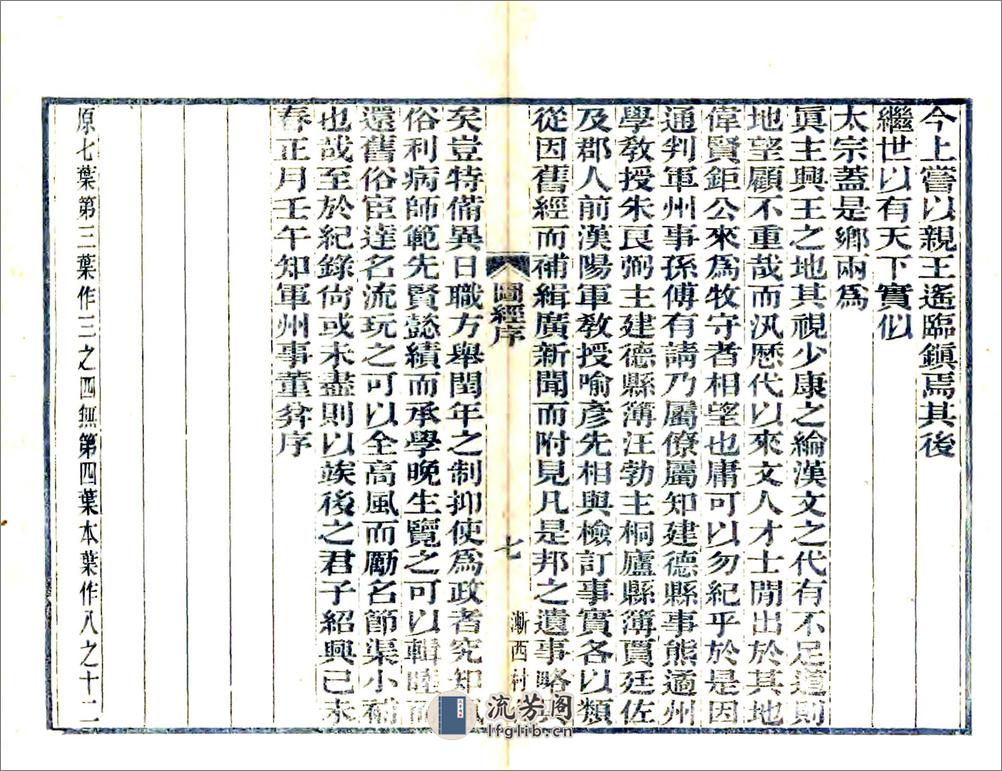 今上嘗以親王遙臨鎮焉其後
繼世以有天下實似
太宗蓋是鄉兩爲
眞主興王之地其視少康之綸漢文之代有不足道則
地望顧不重哉而汎歷代以來文人才士閒出於其地
偉賢鉅公來爲牧守者相望也庸可以勿紀乎於是因
通判軍州事孫傅有請乃屬僚屬知建德縣事熊遹州
學敎授朱良弼主建德縣簿汪勃主桐廬縣簿賈廷佐
及郡人前漢陽軍敎授喻彥先相與檢訂事實各以類
從因舊經而補緝廣新聞而附見凡是邦之遺事略
圖經序
七
漸西村
矣豈特備異日職方舉閏年之制抑使爲政者究知
俗利病師範先賢懿績而承學晚生覽之可以輯睦而
還舊俗宦達名流玩之可以全高風而勵名節渠小補
也哉至於紀錄尙或未盡則以竢後之君子紹興己未
春正月壬午知軍州事董弅序
原七葉第三葉作三之四無第四葉本葉作八之十二
流芳阁
lfglib.cn